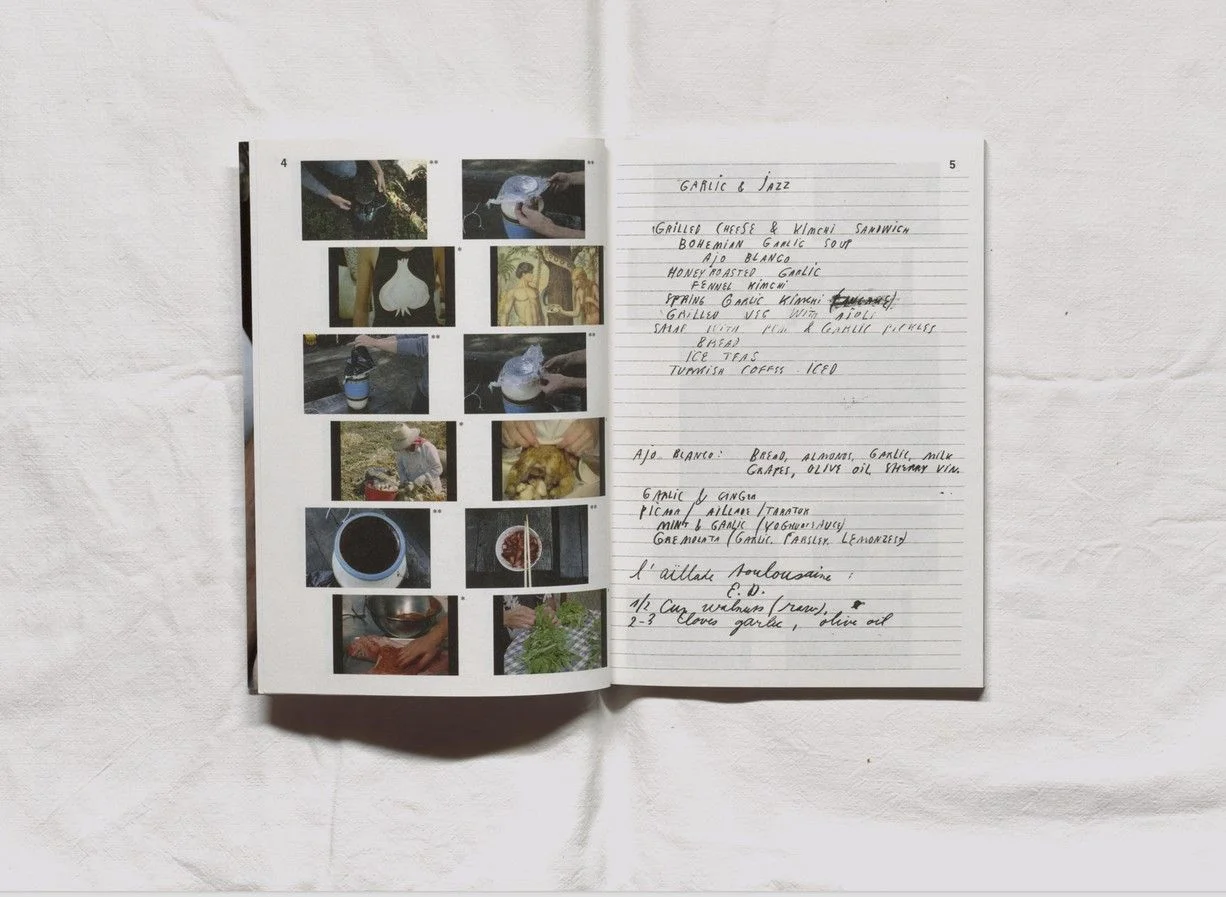 4
**
**
*
**
**
*
**
**
*
5
GARLIC & JAZZ
GRILLED CHEESE & KIMCHI SANDWICH
BOHEMIAN GARLIC SOUP
AJO BLANCO
HONEY ROASTED GARLIC
FENNEL KIMCHI
SPRING GARLIC KIMCHI
GRILLED VEG WITH AIOLI
WITH & GARLIC PICKLES
BREAD
ICE TEAS
TURKISH COFFEE ICED
AJO BLANCO: BREAD, ALMONDS, GARLIC, MILK
GRAPES, OLIVE OIL, SHERRY VIN.
GARLIC & GINGER
/ AILLADE / TARATOR
MINT & GARLIC (YOGHURTSAUCE)
GREMOLATA (GARLIC, PARSLEY, LEMONZEST)
l'aillade toulousaine :
E.D.
1/2 Cup walnuts (raw),
2-3 cloves garlic, olive oil